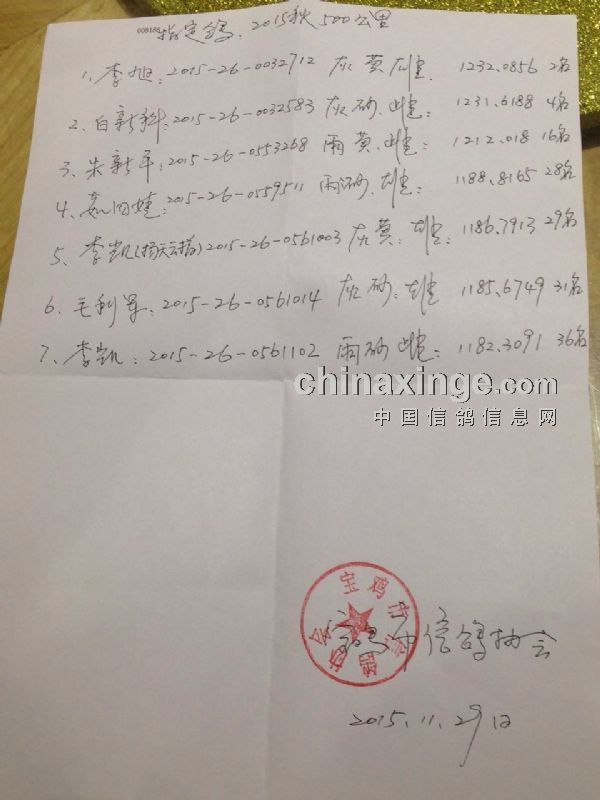 008188
指定鸽. 2015秋500公里
1、李旭:2015-26-0032712 灰黄 雄: 1232.0856 2名
2、白新科:2015-26-0032583 灰砂、雌: 1231.6188 4名
3、朱新平:2015-26-0553268 雨黄、雌: 1212.018 16名
4、2015-26-0559511 雨砂、雄: 1188.8165 28名
5、李凯()2015-26-0561003 灰黄:雄: 1186.7913 29名
6、毛利军:2015-26-0561014 灰砂:雄 1185.6749 31名
7、李凯:2015-26-0561102 雨砂 雌: 1182.3091 36名
chinaxinge.com
中国信鸽信息网
宝鸡市信鸽协会
宝鸡市信鸽协会
2015.11.29日